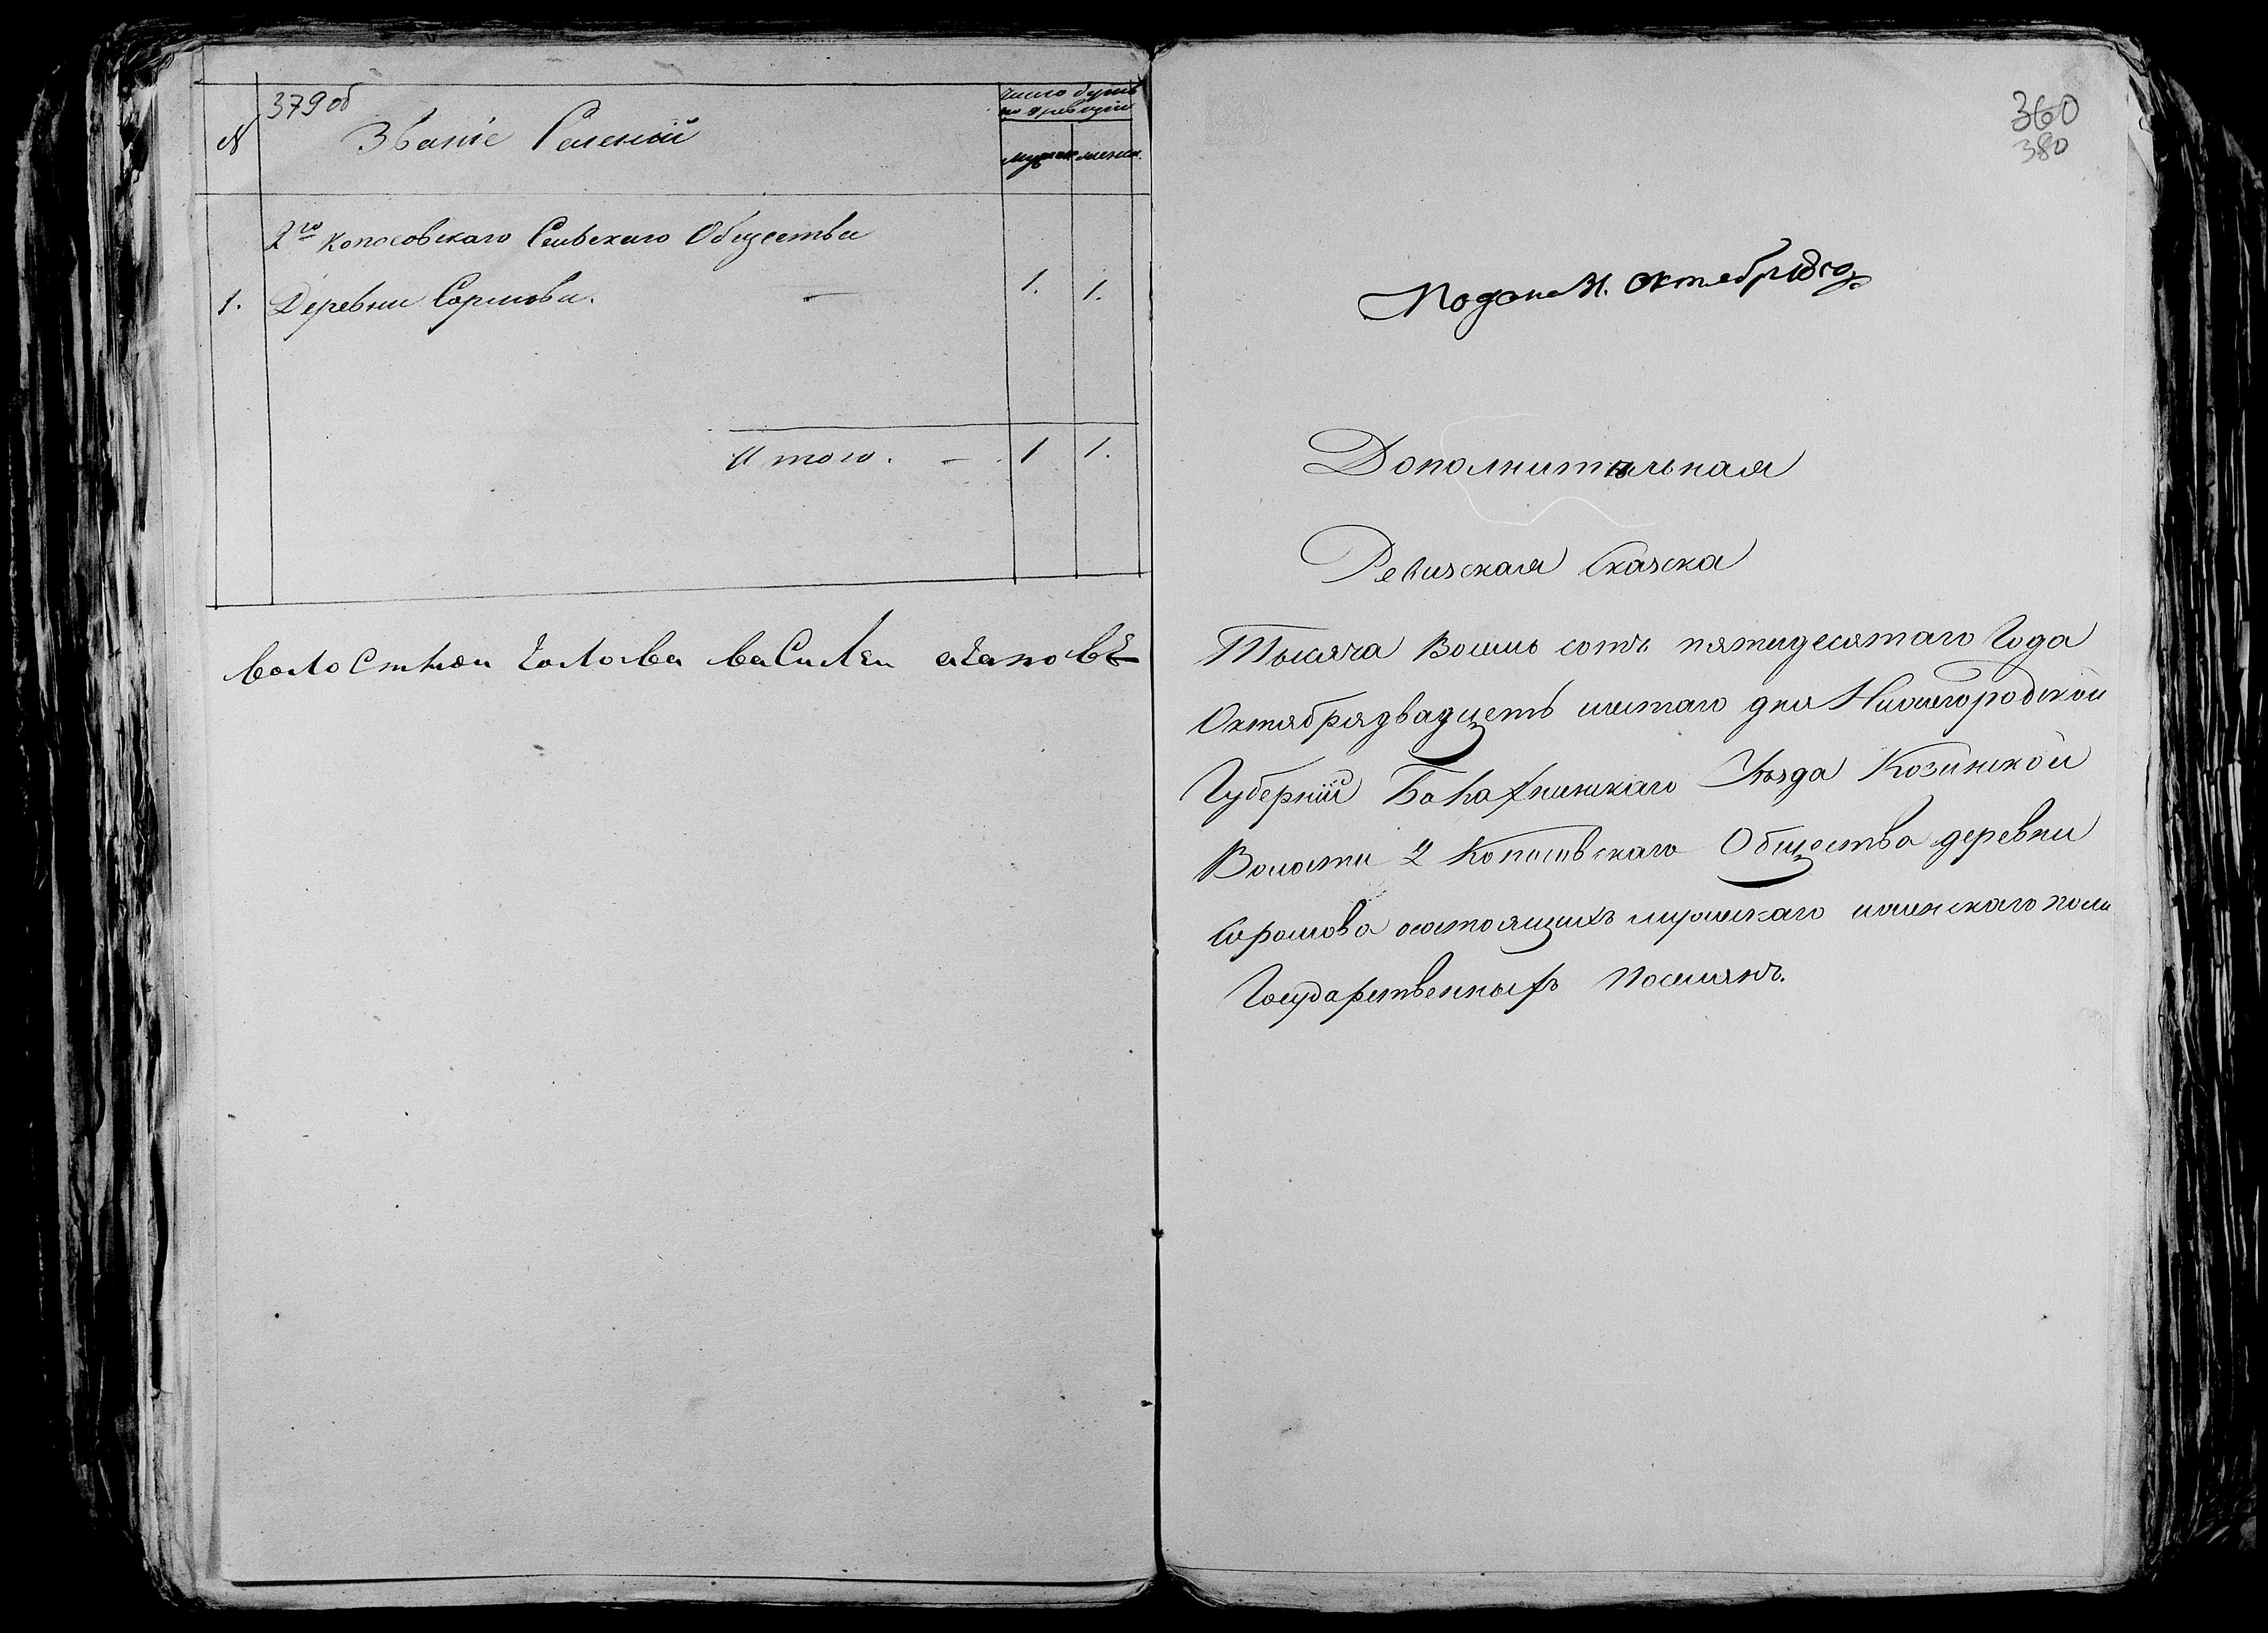 379об
№ Званіе Селеній
Число душъ
по 9 ревизіи
мужск женск.
2го Копосовскаго Сельскаго Общества
1. Деревни Сормова. — 1. 1.
Итого. — 1 1.
волостнои голова василеи агаповъ
360
380
Подана 31. октебря 1850
Дополнительная
Ревизская Сказка
Тысяча восемь сотъ пятидесятаго Года
Октября двадцеть шестаго дня Нижегородской
Губерніи Балахнинскаго Уѣзда Козинской
Волости 2 Копосовскаго Общества деревни
Сормова осостоящихъ мужескаго иженскаго пола
Государственныхъ Поселянъ.